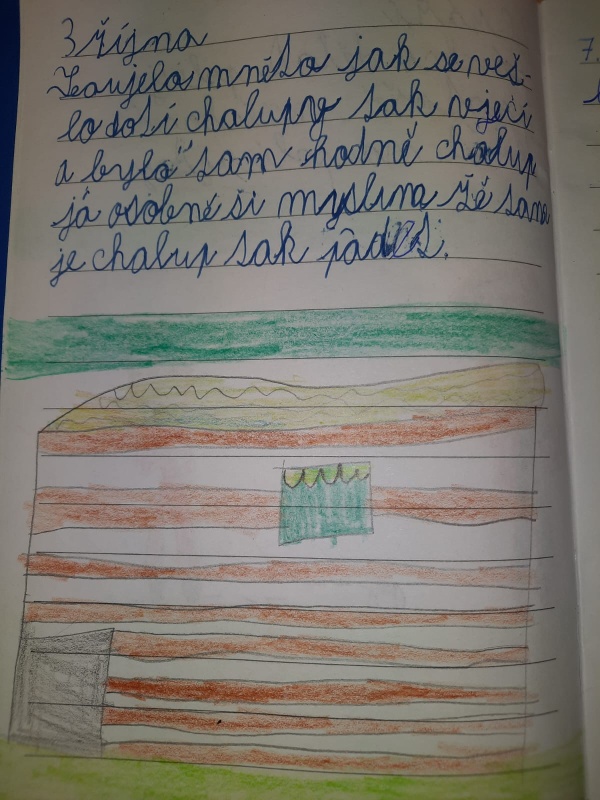 3 října
Zaujelo mněto jak se veš-
lo dotí chalupy tak vjecí
a bylo tam hodně chalup
já osobně si myslima žě tama
je chalup tak pådeS.
7.